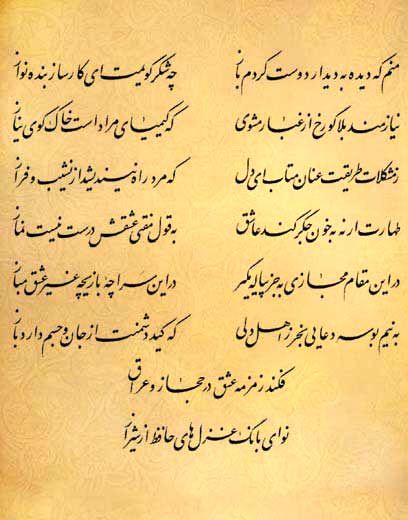 منم که دیده به دیدار دوست کردم باز چه شکر گویمت ای کارساز بنده نواز
نیازمند بلا گو رخ از غبار مشوی که کیمیای مراد است خاک کوی نیاز
ز مشکلات طریقت عنان متاب ای دل که مرد راه نیندیشد از نشیب و فراز
طهارت ار نه به خون جگر کند عاشق به قول مفتی عشقش درست نیست نماز
در این مقام مجازی به جز پیاله مگیر در این سراچه بازیچه غیر عشق مباز
به نیم بوسه دعایی بخر ز اهل دلی که کید دشمنت از جان و جسم دارد باز
فکند زمزمه عشق در حجاز و عراق
نوای بانگ غزل های حافظ از شیراز